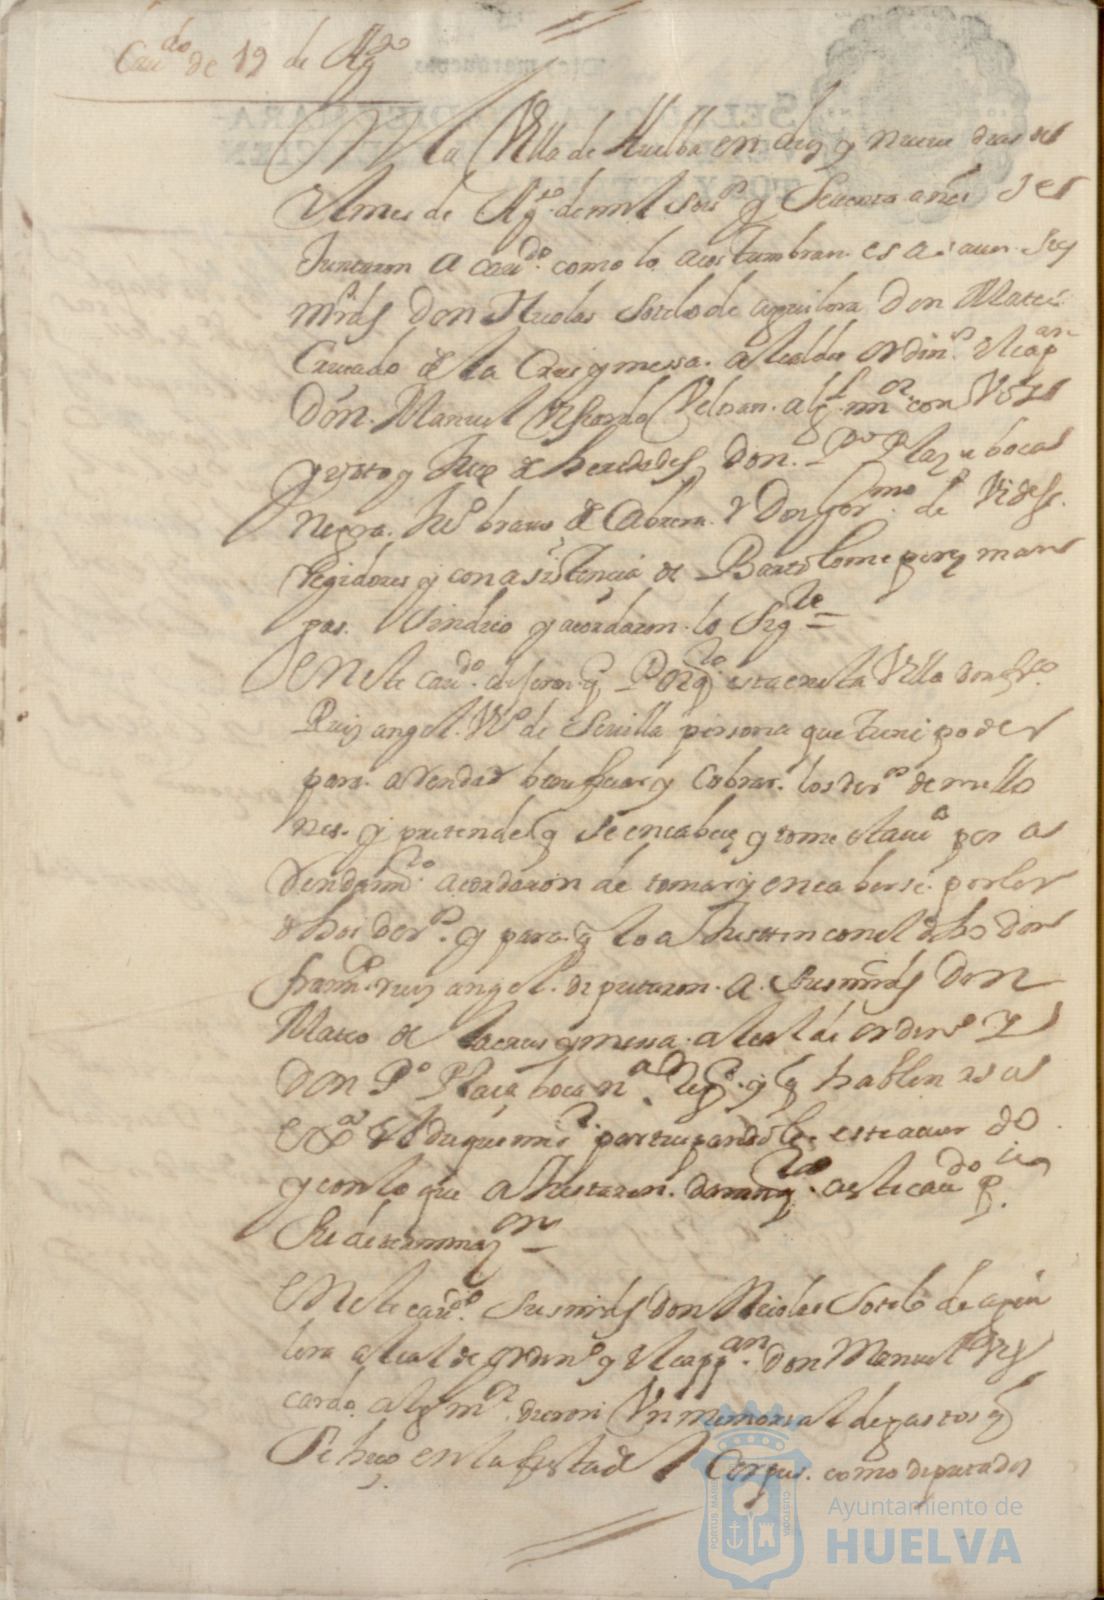 Cau.do de 19 de Ag.to
En la Villa de Huelba en diez y nueue dias del
Mes de Ag.to de mill seis.os y setenta años se
Juntaron a cau.do como lo acostumbran es a sauer sus
mrds Don Nicolas Sotelo de aguilera Don Mateo
Cruzado de la Cruz y messa alcaldes ordin.os el cap.an
Don Manuel Viscardo alg.l m.or con Voz
y voto y Juez de heredades Don P.o Plaza boca
negra Ju.o brauo de Cabrera Y Don Ger.mo de
Regidores y con asistencia de Bartolome perez mar
Sindico y acordaron lo Sig.te
En este cau.do dijeron q Por q.to esta en esta Villa don fr.co
Ruiz angel V.o de Seuilla persona que tiene poder
para arendar benefiziar y Cobrar los der.os de millo
nes y pretende q se encabeze y tome esta ui.a por a
Rendam.to acordaron de tomar y encabesarse por los
dhos der.os y para q lo ajusten con el dho don
fran.co ruiz angel deputaron a sus mrds Don
Mateo de la cruz y messa alcalde ordin.o Y
Don P.o Plaça boca n.a reg.or y q hablen a su
ex.a el duque mi s.r participandole este acuerdo
y con lo que ajustaren a este cau.do p.a
su determinaz.on
En este cau.do sus mrds don Nicolas Sotelo de agui
lera alcalde ordin.o y el capp.an don Manuel Vis
cardo alg m.or dieron Vn memorial de gastos q
se hizo en la fiesta del Corpus como diputados
Ayuntamiento de
HUELVA
PORTUS MARIS
CUSTODIA